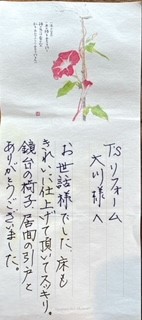 TSリフォーム
大川様へ
お世話様でした、床も
きれいに仕上げて頂いてスッキリ。
鏡台の椅子、居間の引戸と
ありがとうございました。